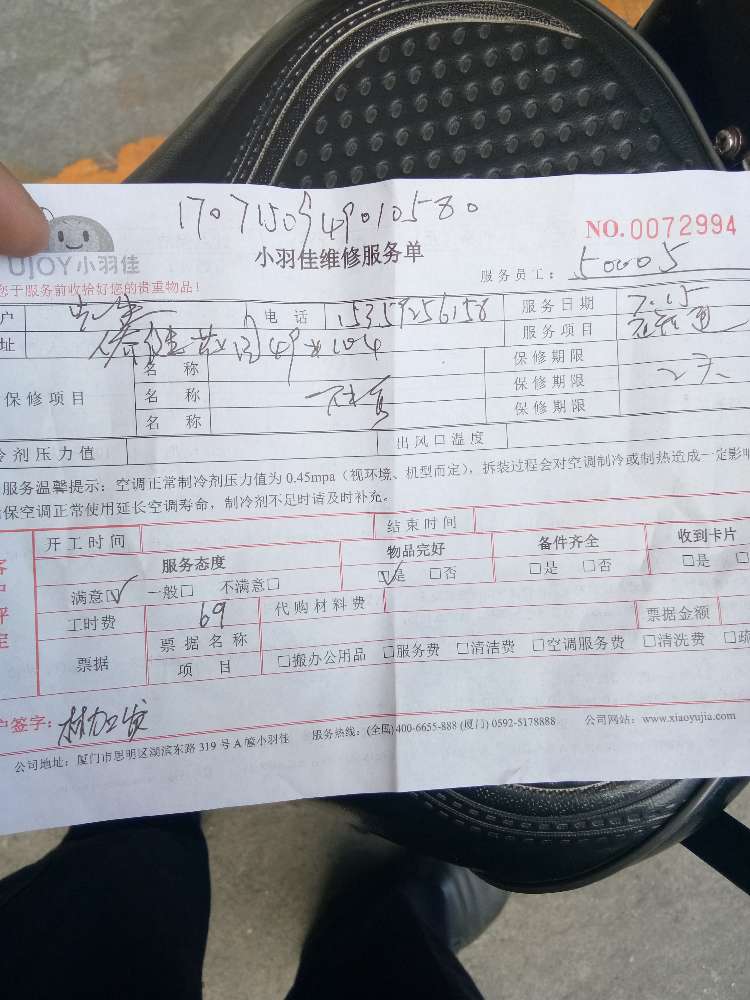 1707150949010580
UJOY小羽佳
小羽佳维修服务单
NO.0072994
您于服务前收拾好您的贵重物品！
服务员工：50005
户
电 话 15359256158
服务日期 7.15
址
49#104
服务项目
保修项目
名 称
保修期限
名 称
保修期限
名 称
保修期限
冷剂压力值
出风口温度
服务温馨提示：空调正常制冷剂压力值为 0.45mpa（视环境、机型而定），拆装过程会对空调制冷或制热造成一定影响
保空调正常使用延长空调寿命，制冷剂不足时请及时补充。
开工时间
结束时间
服务态度
物品完好
备件齐全
收到卡片
满意☑ 一般□ 不满意□
☑是 □否
□是 □否
□是 □
工时费 69
代购材料费
票据金额
票据
票据名称
项 目
□搬办公用品 □服务费 □清洁费 □空调服务费 □清洗费 □疏
户签字：林加发
公司地址：厦门市思明区湖滨东路 319 号 A 幢小羽佳 服务热线：(全国)400-6655-888 (厦门) 0592-5178888 公司网站：www.xiaoyujia.com